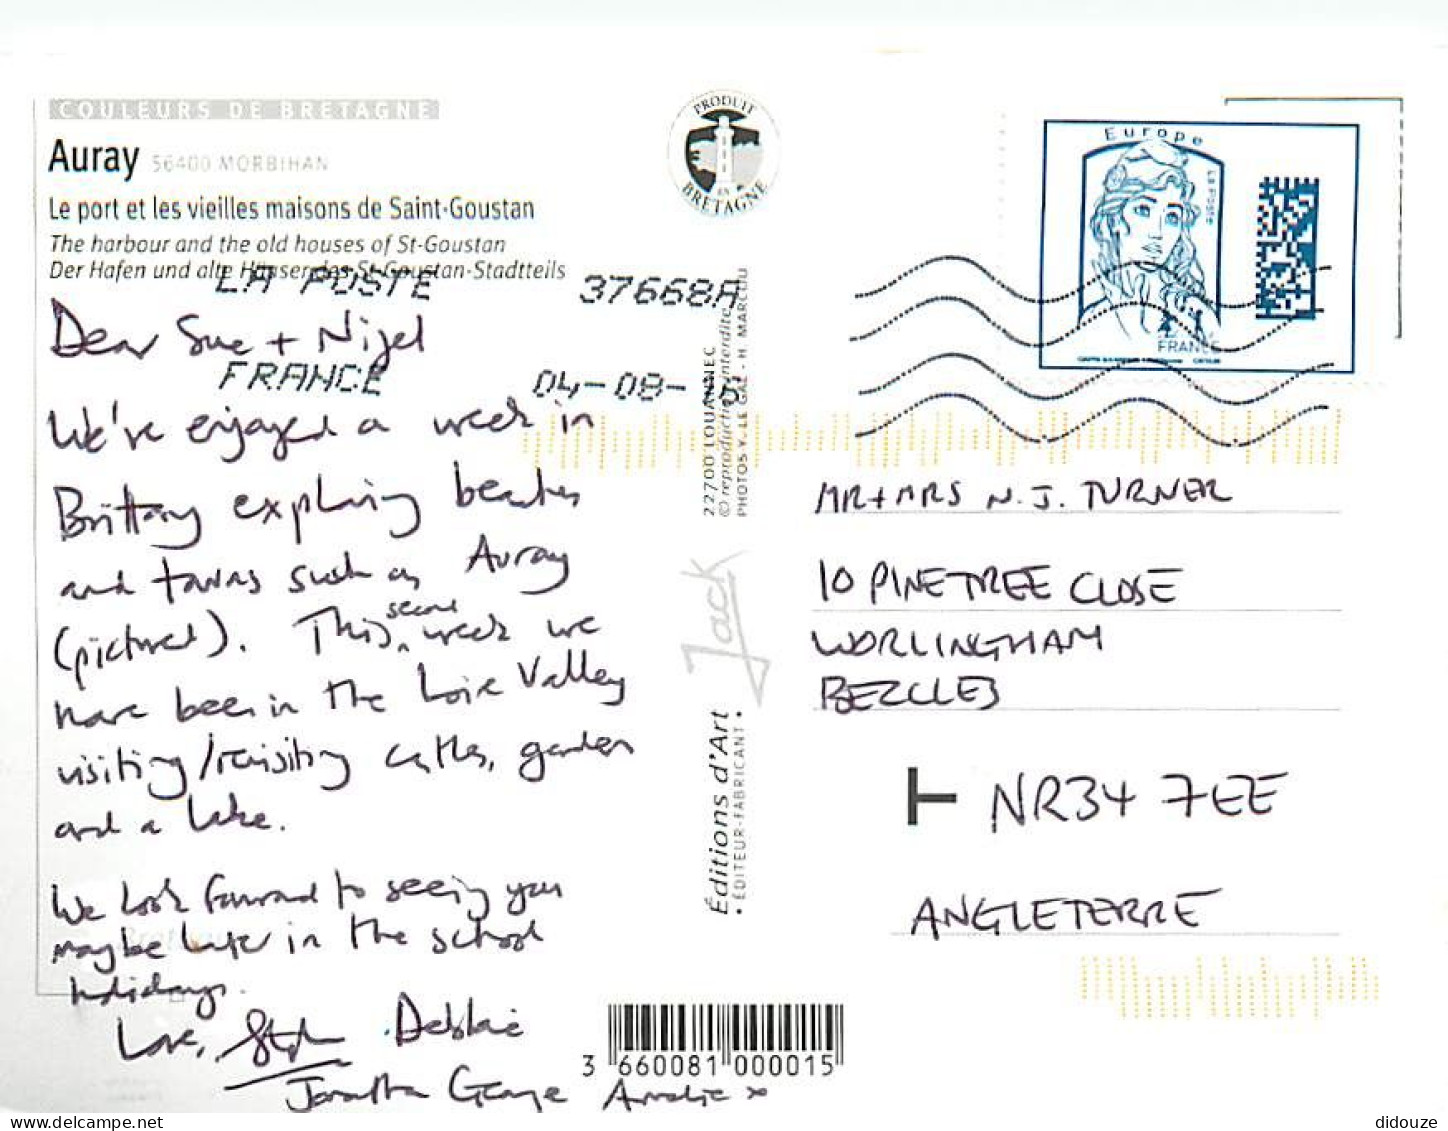 COULEURS DE BRETAGNE
Auray 56400 MORBIHAN
Le port et les vieilles maisons de Saint-Goustan
The harbour and the old houses of St-Goustan
Der Hafen und alte Häuser des St-Goustan-Stadtteils
PRODUIT EN BRETAGNE
Europe
LA POSTE
FRANCE
LA POSTE 37668A
FRANCE 04-08-
Dear Sue + Nigel
We've enjoyed a week in
Brittany exploring beaches
and towns such as Auray
(pictured). This second week we
have been in the Loire Valley
visiting/revisiting castles, garden
and a lake.
We look forward to seeing you
maybe later in the school
holidays.
Love, Stephen Debbie
Jonathan George Amelie x
22700 LOUANNEC
© reproduction interdite
PHOTOS Y. LE GAL - H. MARCOU
Jack
Éditions d'Art
• ÉDITEUR-FABRICANT •
MR + MRS N. J. TURNER
10 PINETREE CLOSE
WORLINGHAM
BECCLES
NR34 7EE
ANGLETERRE
3 660081 000015
didouze